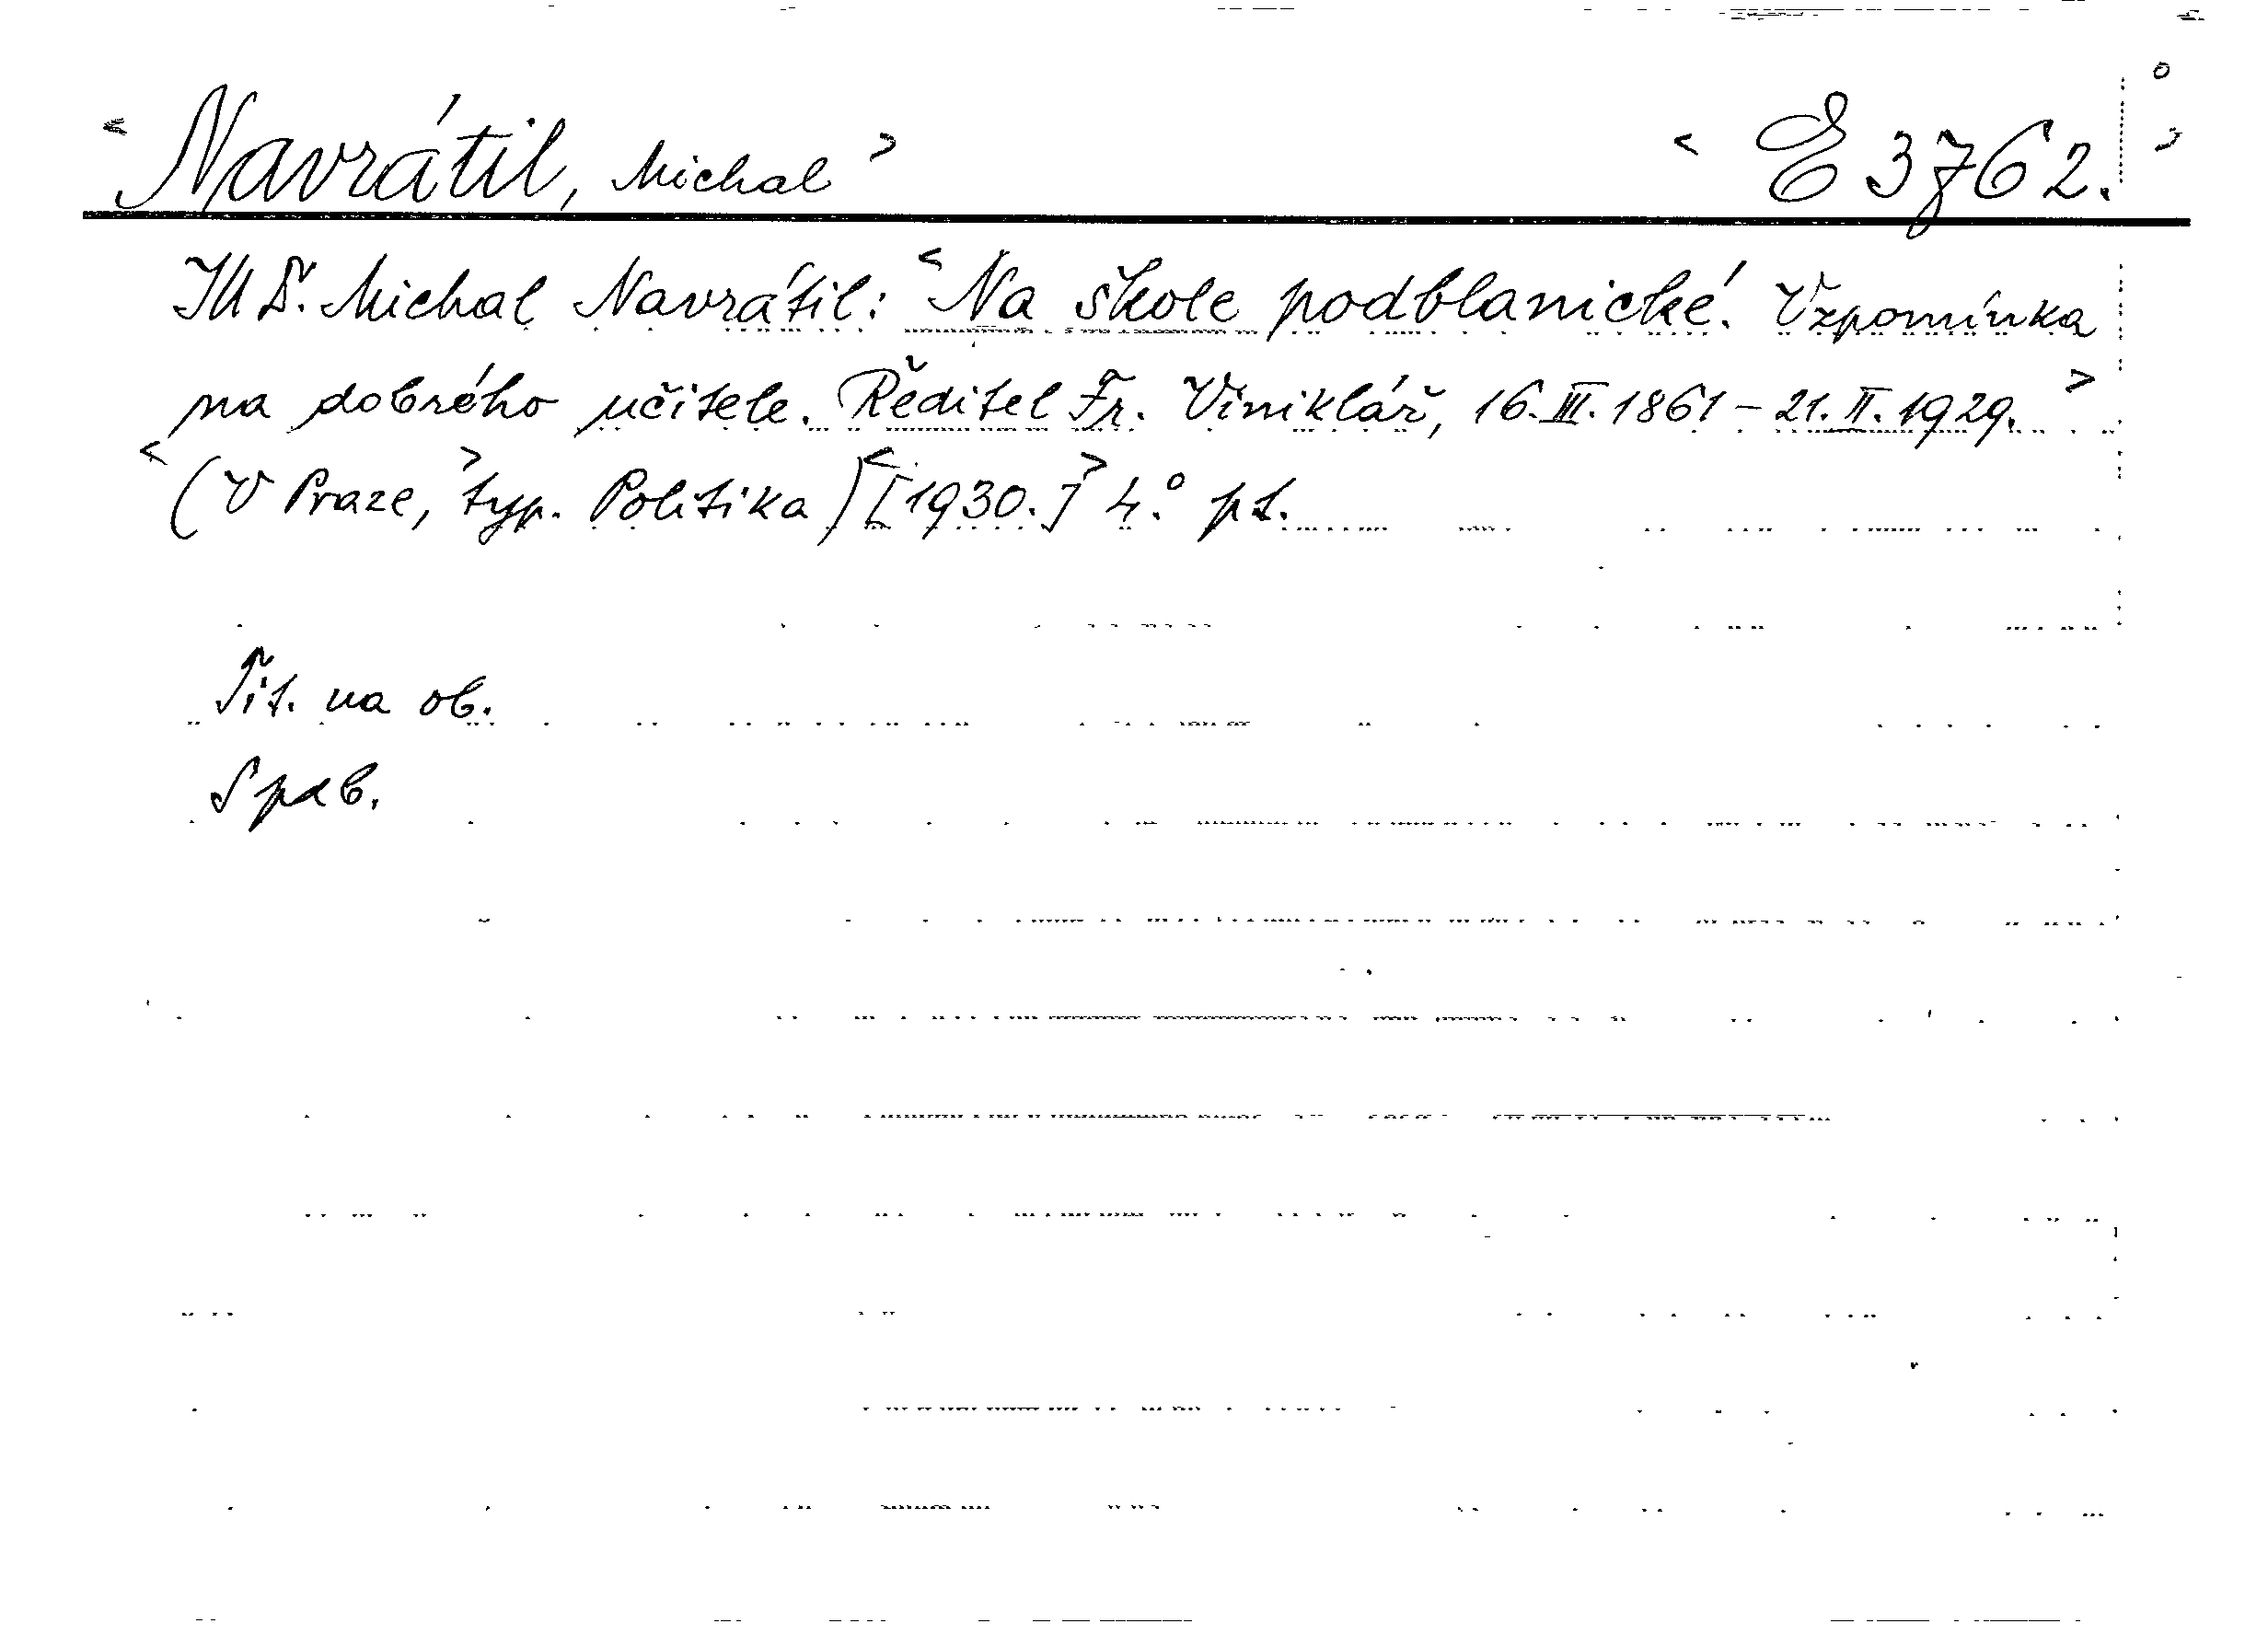 < Navrátil, Michal > < E 3762. >
JUDr. Michal Navrátil: < Na škole podblanické. Vzpomínka
na dobrého učitele. Ředitel Fr. Viniklář, 16.III.1861 – 21.II.1929. >
< (V Praze, > typ. Politika) < [1930.] > 4.° pt.
Tit. na ob.